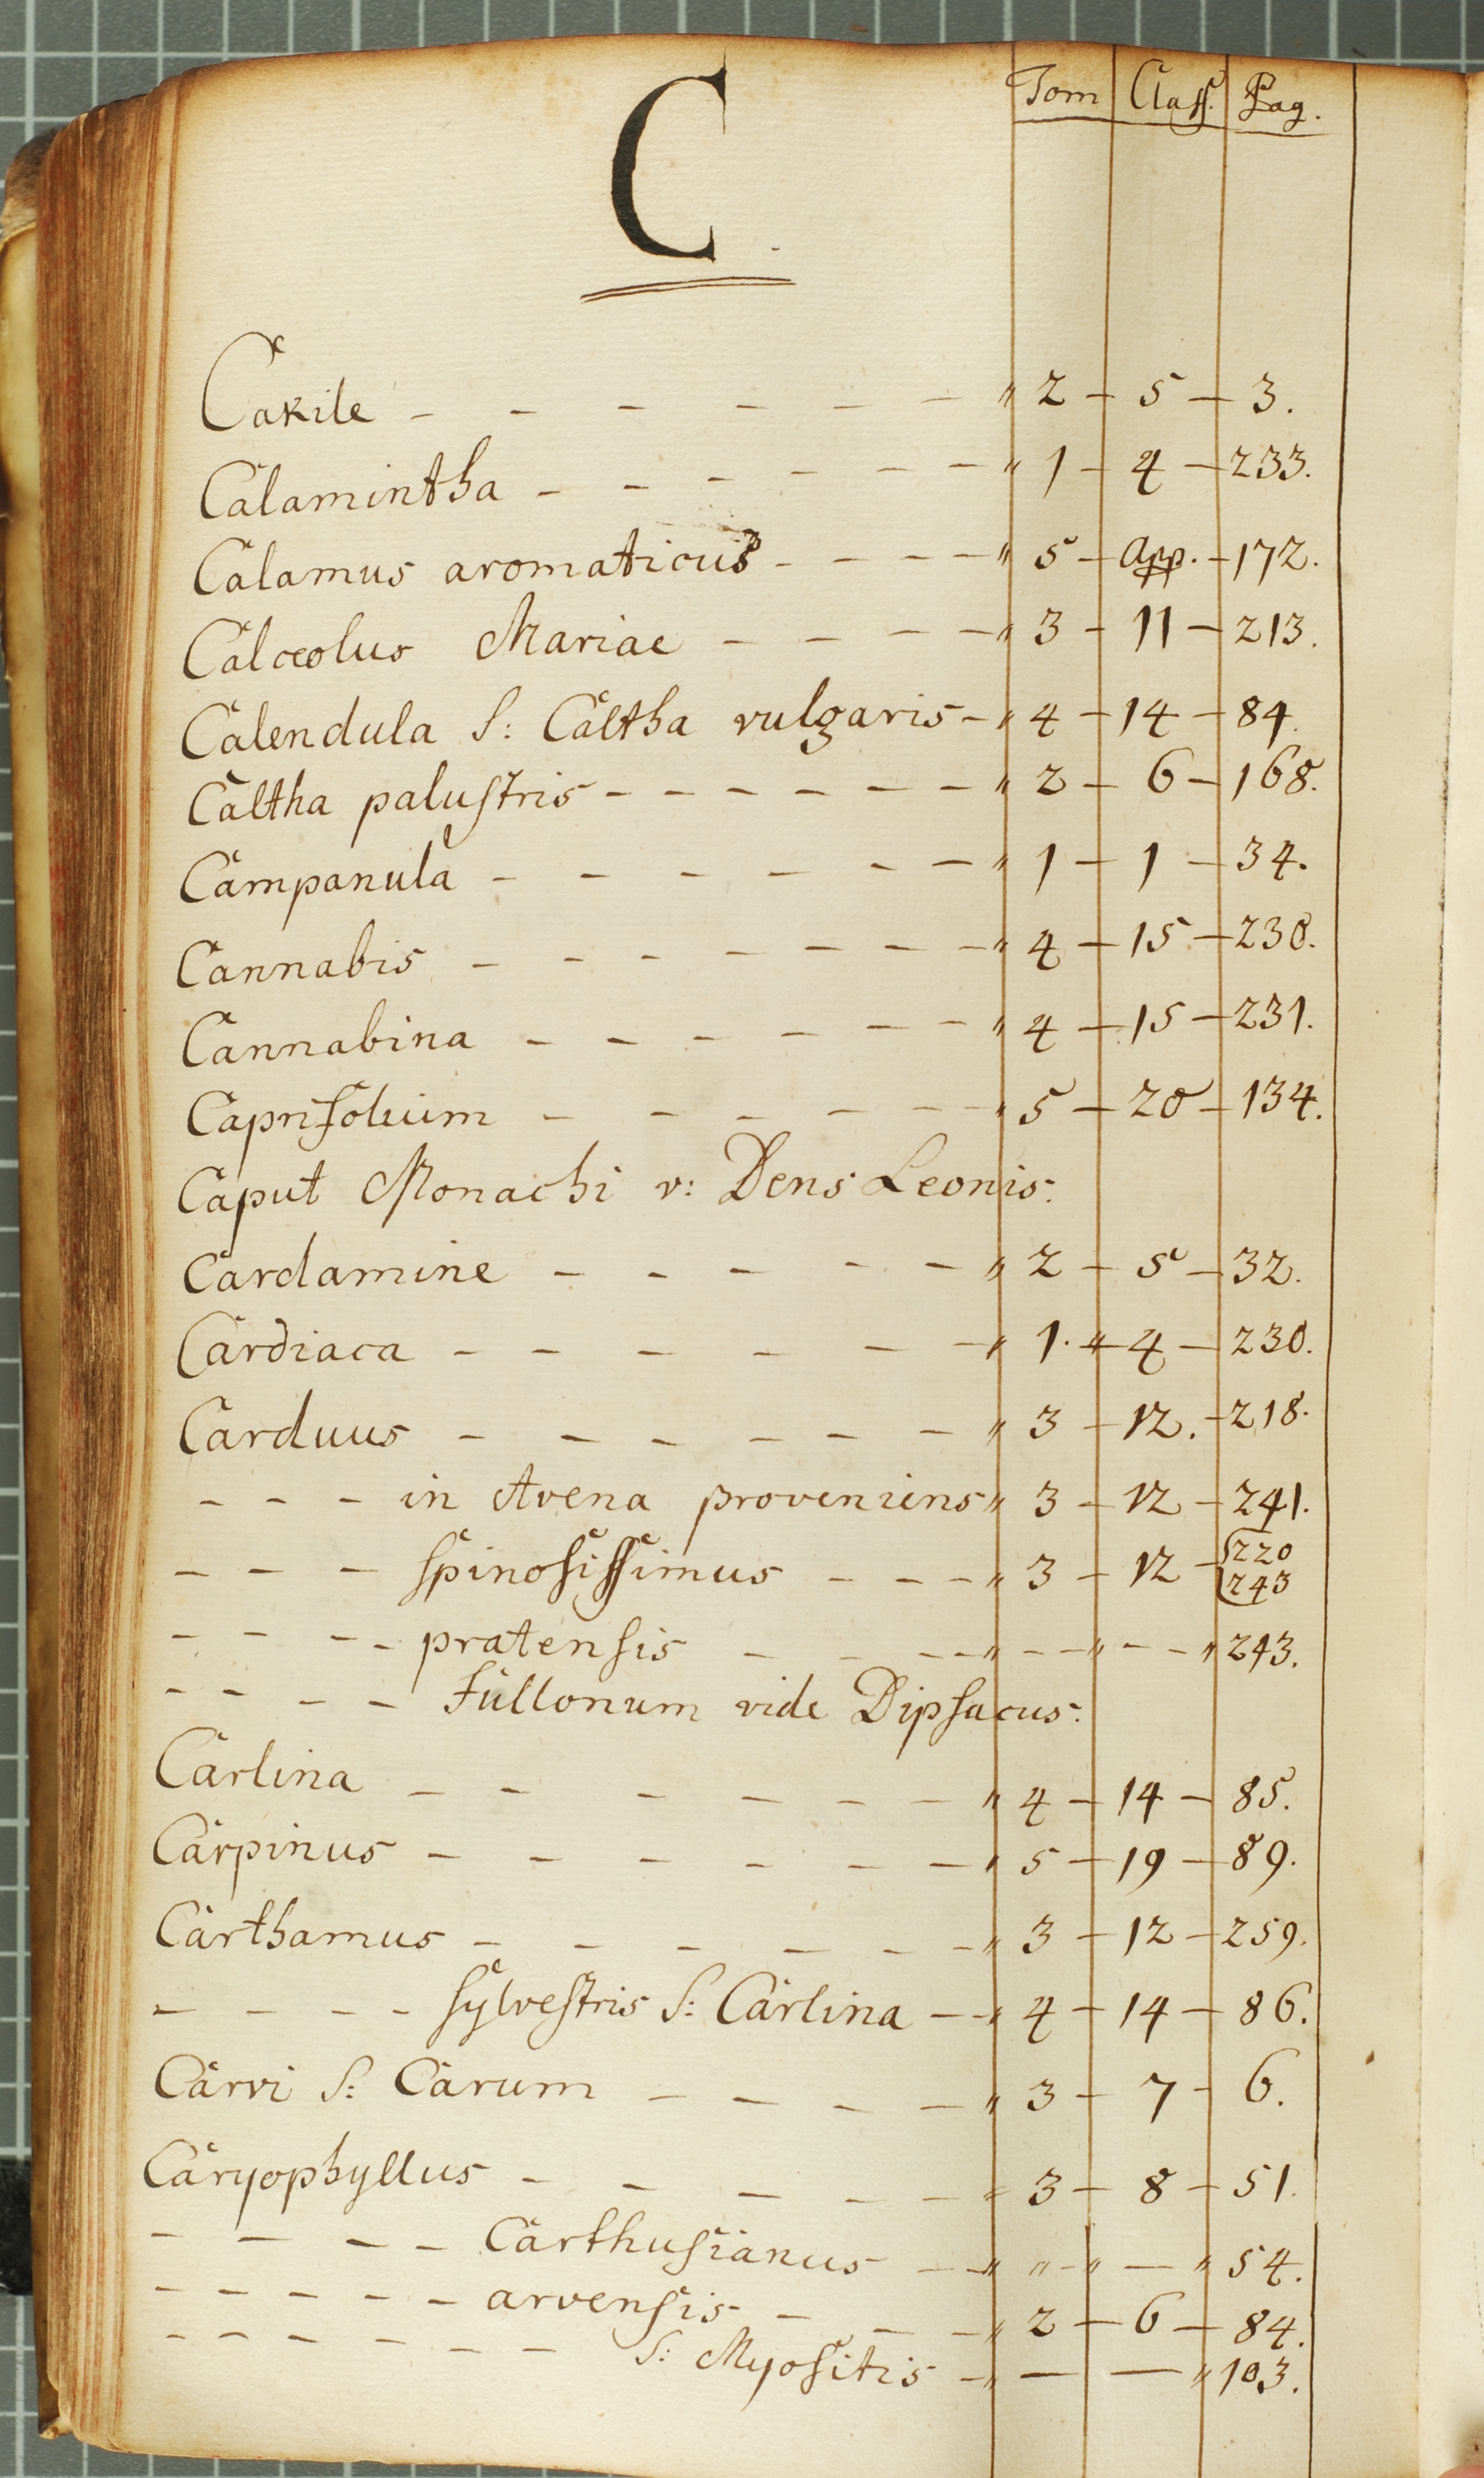 Tom Class. Pag.
C.
Cakile - - - - - - " 2 - 5 - 3.
Calamintha - - - - - - " 1 - 4 - 233.
Calamus aromaticus - - - - " 5 - App. - 172.
Calceolus Mariae - - - - " 3 - 11 - 213.
Calendula S: Caltha vulgaris - " 4 - 14 - 84.
Caltha palustris - - - - - - - " 2 - 6 - 168.
Campanula - - - - - - " 1 - 1 - 34.
Cannabis - - - - - - - " 4 - 15 - 230.
Cannabina - - - - - - " 4 - 15 - 231.
Caprifolium - - - - - - " 5 - 20 - 134.
Caput Monachi v: Dens Leonis.
Cardamine - - - - - " 2 - 5 - 32.
Cardiaca - - - - - - " 1. " 4 - 230.
Carduus - - - - - - " 3 - 12. - 218.
- - - in Avena proveniens " 3 - 12 - 241.
- - - spinosissimus - - - " 3 - 12 - { 220
243
- - - - pratensis - - - - " - - " - - " 243.
- - - - Fullonum vide Dipsacus.
Carlina - - - - - - " 4 - 14 - 85.
Carpinus - - - - - - " 5 - 19 - 89.
Carthamus - - - - - - " 3 - 12 - 259.
- - - - sylvestris S: Carlina - - " 4 - 14 - 86.
Carvi S: Carum - - - - " 3 - 7 - 6.
Caryophyllus - - - - - " 3 - 8 - 51.
- - - - Carthusianus - - " " - " - " 54.
- - - - - arvensis - - - " 2 - 6 - 84.
- - - - - - - S: Myositis - " - - " 103.